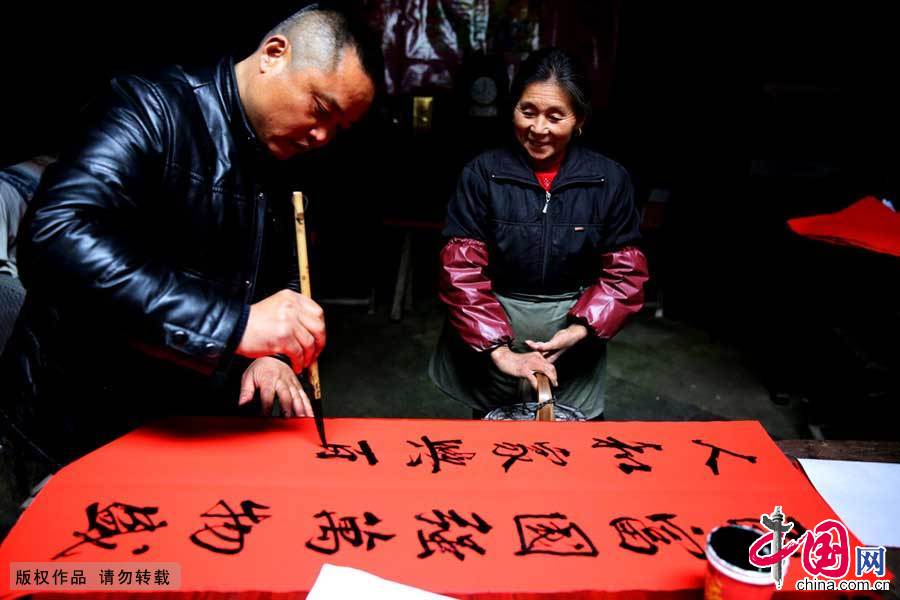 人和家興百
富國強萬物盛
版权作品 请勿转载
中国网
china.com.cn